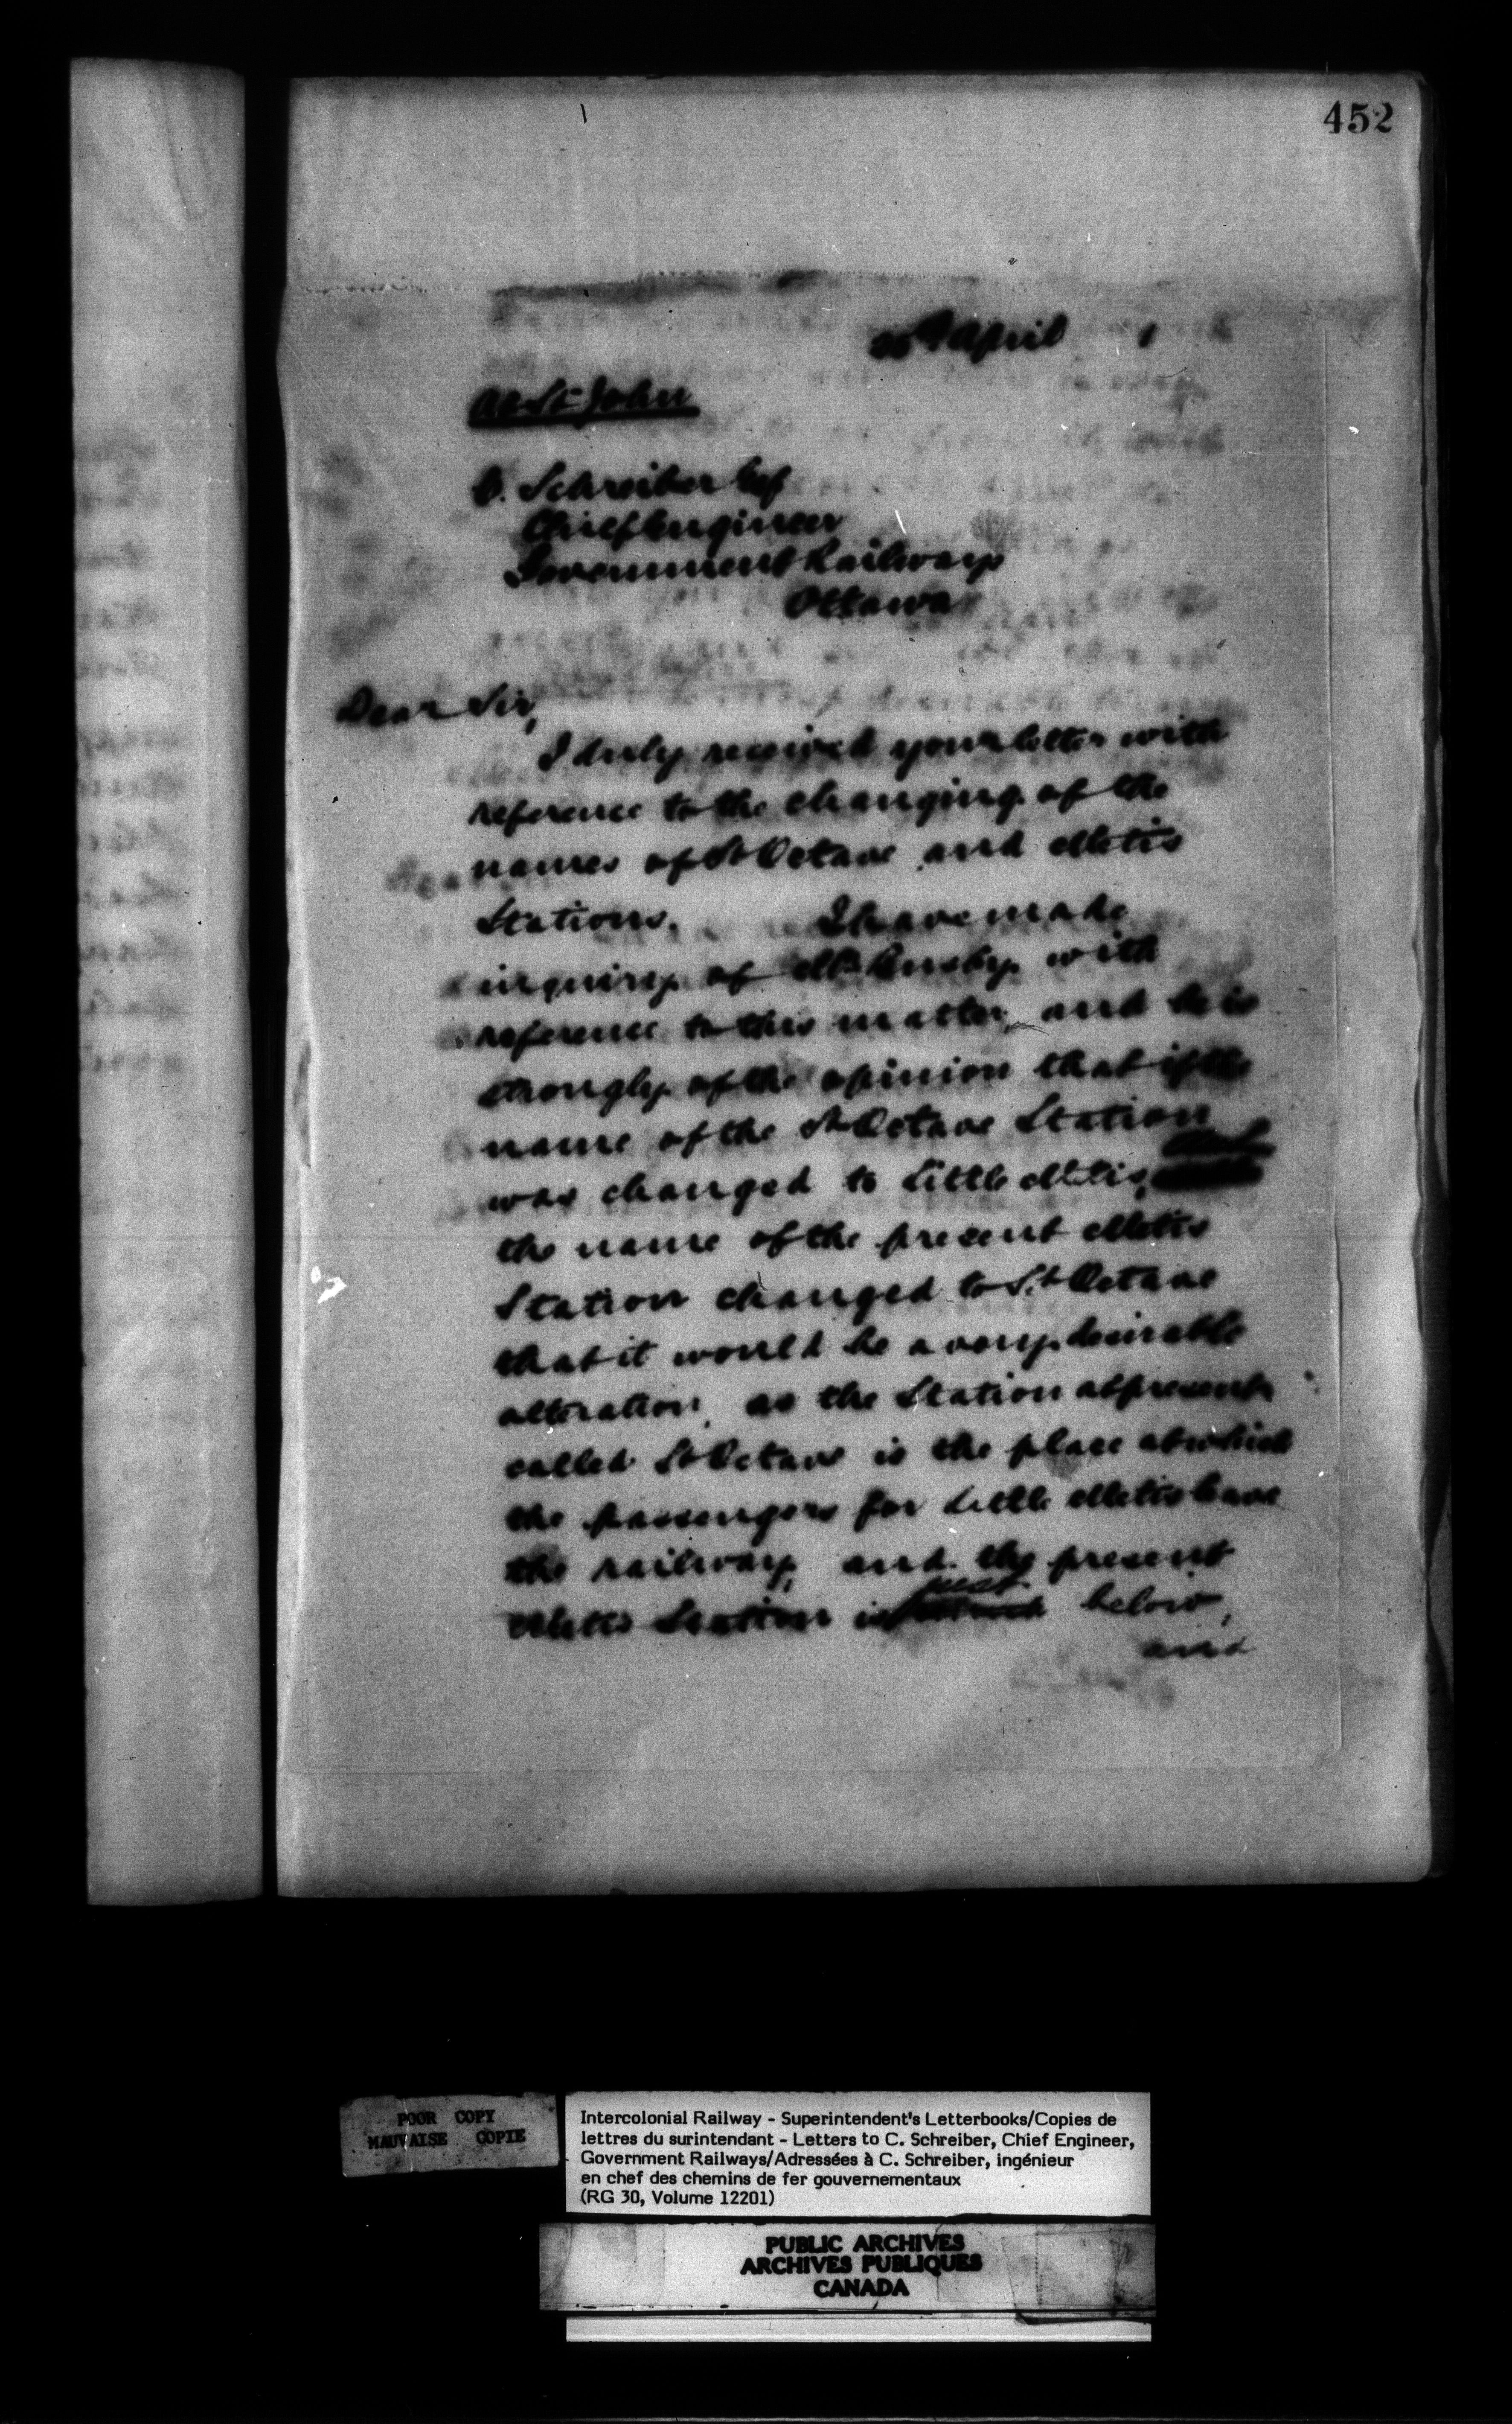 452
April 1
At St John
C. Schreiber Esq
Chief Engineer
Government Railways
Ottawa
Dear Sir,
I duly received your letter with
reference to the changing of the
names of St Octave and Metis
Stations. I have made
inquiry of Mr Busby with
reference to this matter, and he is
strongly of the opinion that if the
name of the St Octave Station
was changed to Little Metis, and
the name of the present Metis
Station changed to St Octave
that it would be a very desirable
alteration, as the Station at present
called St Octave is the place at which
the passengers for Little Metis leave
the railway, and the present
Metis Station is just below,
and
POOR COPY
MAUVAISE COPIE
Intercolonial Railway - Superintendent's Letterbooks/Copies de
lettres du surintendant - Letters to C. Schreiber, Chief Engineer,
Government Railways/Adressées à C. Schreiber, ingénieur
en chef des chemins de fer gouvernementaux
(RG 30, Volume 12201)
PUBLIC ARCHIVES
ARCHIVES PUBLIQUES
CANADA